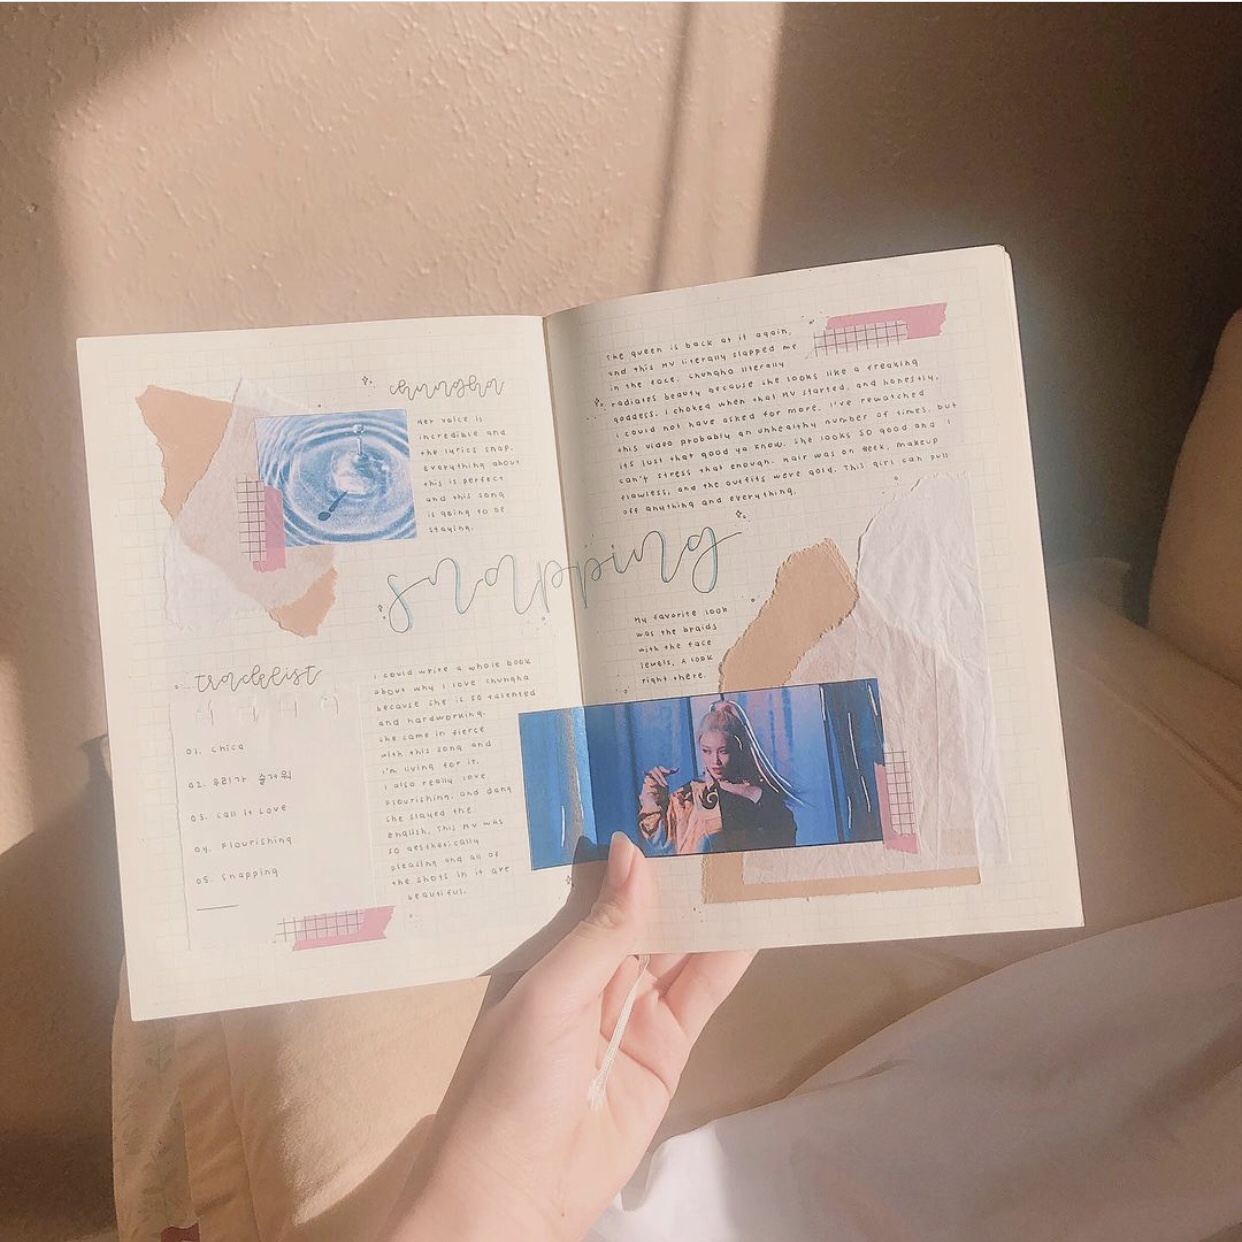 chungha
her voice is
incredible and
the lyrics snap.
everything about
this is perfect
and this song
is going to be
staying.
snapping
tracklist
01. chica
02. 우리가 즐거워
03. call it love
04. flourishing
05. snapping
i could write a whole book
about why i love chungha
because she is so talented
and hardworking.
she came in fierce
with this song and
i'm living for it.
i also really love
flourishing. and dang
she slayed the
english. this mv was
so aesthetically
pleasing and all of
the shots in it are
beautiful.
the queen is back at it again,
and this mv literally slapped me
in the face. chungha literally
radiates beauty because she looks like a freaking
goddess. i choked when that mv started, and honestly,
i could not have asked for more. i've rewatched
this video probably an unhealthy number of times, but
its just that good ya know. she looks so good and i
can't stress that enough. hair was on fleek, makeup
flawless, and the outfits were gold. this girl can pull
off anything and everything.
my favorite look
was the braids
with the face
jewels. a look
right there.